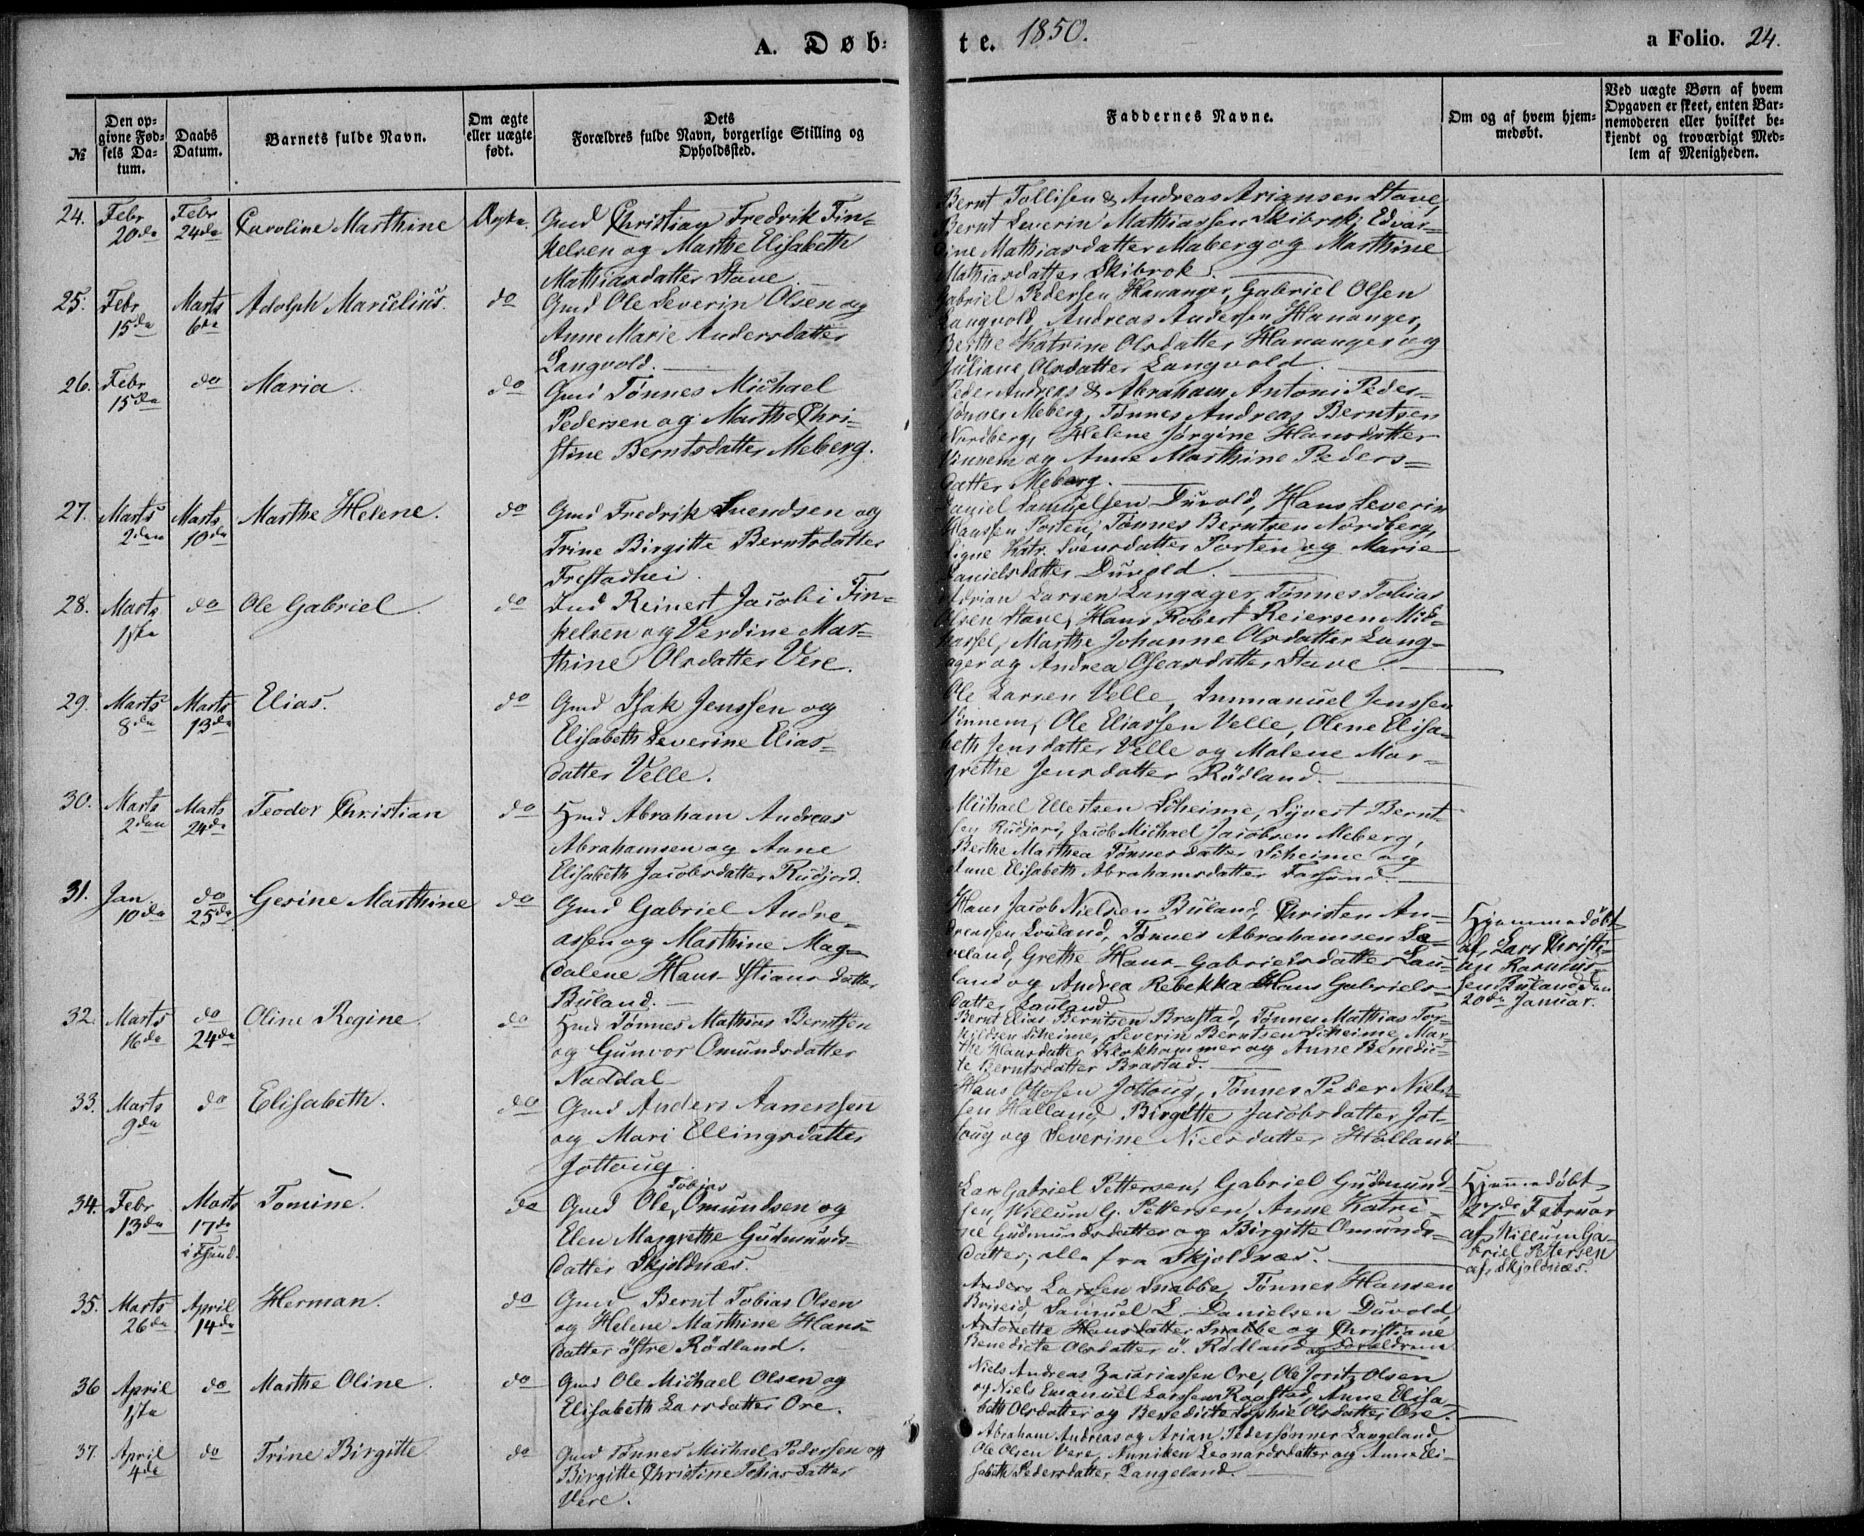 A. Døb-
te. 1850.
a Folio. 24.
№
Den op-
givne Fød-
sels Da-
tum.
Daabs
Datum.
Barnets fulde Navn.
Om ægte
eller uægte
født.
Dets
Forældres fulde Navn, borgerlige Stilling og
Opholdssted.
Faddernes Navne.
Om og af hvem hjem-
medøbt.
Ved uægte Børn af hvem
Opgaven er skeet, enten Bar-
nemoderen eller hvilket be-
kjendt og troværdigt Med-
lem af Menigheden.
24. Febr 20de
Febr 24de
Caroline Marthine
Ægte.
Gmd Christian Fredrik Tin-
kelsen og Marthe Elisabeth
Mathiasdatter Stave
Bernt Tollisen & Andreas Ariansen Stave,
Bernt Severin Mathiassen Skibrok, Edvar-
dine Mathiasdatter Maberg og Marthine
Mathiasdatter Skibrok.
25. Febr 15de
Marts 6te
Adolph Marcelius.
do
Gmd Ole Severin Olsen og
Anne Marie Andersdatter
Langvold.
Gabriel Pedersen Hananger, Gabriel Olsen
Langvold, Andreas Andersen Hananger,
Berthe Katrine Olsdatter Hananger og
Juliane Olsdatter Langvold.
26. Febr 15de
do
Maria.
do
Gmd Tønnes Michael
Pedersen og Marthe Chri-
stine Berntsdatter Meberg.
Peder Andreas & Abraham Antoni Peder-
sønner Meberg, Tønnes Andreas Berntsen
Nordberg, Helene Jørgine Hansdatter
Vinnem og Anne Marthine Peders-
datter Meberg.
27. Marts 2den
Marts 10de
Marthe Helene.
do
Gmd Fredrik Svendsen og
Trine Birgitte Berntsdatter
Frestadhei.
Daniel Samuelsen Duvold, Hans Severin
Hanssen Porten, Tønnes Berntsen Nordberg,
Signe Katr. Svensdatter Porten og Marie
Danielsdatter Duvold.
28. Marts 1ste
do
Ole Gabriel.
do
Ind Reinert Jacobi Tin-
kelsen og Verdine Mar-
thine Olsdatter Vere.
Adrian Larsen Langager, Tønnes Tobias
Olsen Stave, Hans Robert Reiersen Mid-
hassel, Marthe Johanne Olsdatter Lang-
ager og Andrea Osearsdatter Stave.
29. Marts 8de
Marts 13de
Elias.
do
Gmd Isak Jenssen og
Elisabeth Severine Elias-
datter Velle.
Ole Larsen Velle, Immanuel Jenssen
Vinnem, Ole Eliassen Velle, Olene Elisa-
beth Jensdatter Velle og Malene Mar-
grethe Jensdatter Rödland.
30. Marts 2den
Marts 24de
Teodor Christian
do
Hmd Abraham Andreas
Abrahamsen og Anne
Elisabeth Jacobsdatter Rudjord.
Michael Ellertsen Siheime, Syvert Bernt-
sen Rudjord, Jacob Michael Jacobsen Meberg,
Berthe Marthea Tønnesdatter Siheime og
Anne Elisabeth Abrahamsdatter Farsund.
31. Jan. 10de
do 25de
Gesine Marthine
do
Gmd Gabriel Andre-
assen og Marthine Mag-
dalene Hans Christiansdatter
Buland.
Hans Jacob Nielsen Buland, Christen An-
dreassen Louland, Tønnes Abrahamsen Sæ-
veland, Grethe Hans-Gabrielsdatter Lau-
land og Andrea Rebekka Hans Gabriels-
datter Lauland
Hjemmedøbt
af Lars Christi-
an Rasmus-
sen Buland den
20de Januar.
32. Marts 16de
do 24de
Oline Regine.
do
Hmd Tønnes Mathias Berntsen
og Gunvor Omundsdatter
Naddal
Bernt Elias Berntsen Brastad, Tønnes Mathias Tor-
kildsen Siheime, Severin Berntsen Siheime, Mar-
the Hansdatter Klokhammer og Anne Benedic-
te Berntsdatter Brastad.
33. Marts 9de
do
Elisabeth.
do
Gmd Anders Aanensen
og Mari Ellingsdatter
Jottoug.
Hans Ottosen Jottoug, Tønnes Peder Niels-
sen Holland, Birgitte Jacobsdatter Jot-
toug og Severine Nielsdatter Holland
34. Febr 13de
Marts 17de i Fsund.
Tomine.
do
Gmd Ole Tobias Omundsen og
Elen Margrethe Gudmunds-
datter Skjoldnæs.
Lars Gabriel Pettersen, Gabriel Gudmund-
sen, Willum G. Pettersen, Anne Katri-
ne Gudmundsdatter og Birgitte Omunds-
datter, alle fra Skjoldnæs.
Hjemmedøbt
27de Februar
af Willum Ga-
briel Petersen
af Skjoldnæs.
35. Marts 26de
April 14de
Herman.
do
Gmd Bernt Tobias Olsen
og Helene Marthine Hans-
datter östre Rödland.
Anders Larsen Snabbe, Tønnes Hansen
Briseid, Samuel L. Danielsen Duvold,
Antonette Hansdatter Snabbe og Christiane
Benedicte Olsdatter ö. Rödland og Forældrene
36 April 1ste
do
Marthe Oline.
do
Gmd Ole Michael Olsen og
Elisabeth Larsdatter Ore.
Niels Andreas Zacariassen Ore, Ole Joritz Olsen
og Niels Emanuel Larssen Rogstad, Anne Elisa-
beth Olsdatter og Benedicte Sophie Olsdatter Ore.
37. April 4de
do
Trine Birgitte
do
Gmd Tønnes Michael Pedersen og
Birgitte Christine Tobiasdatter
Vere.
Abraham Andreas og Arian Pedersønner Langeland,
Ole Olsen Vere, Anniken Leonardsdatter og Anne Eli-
sabeth Pedersdatter Langeland.